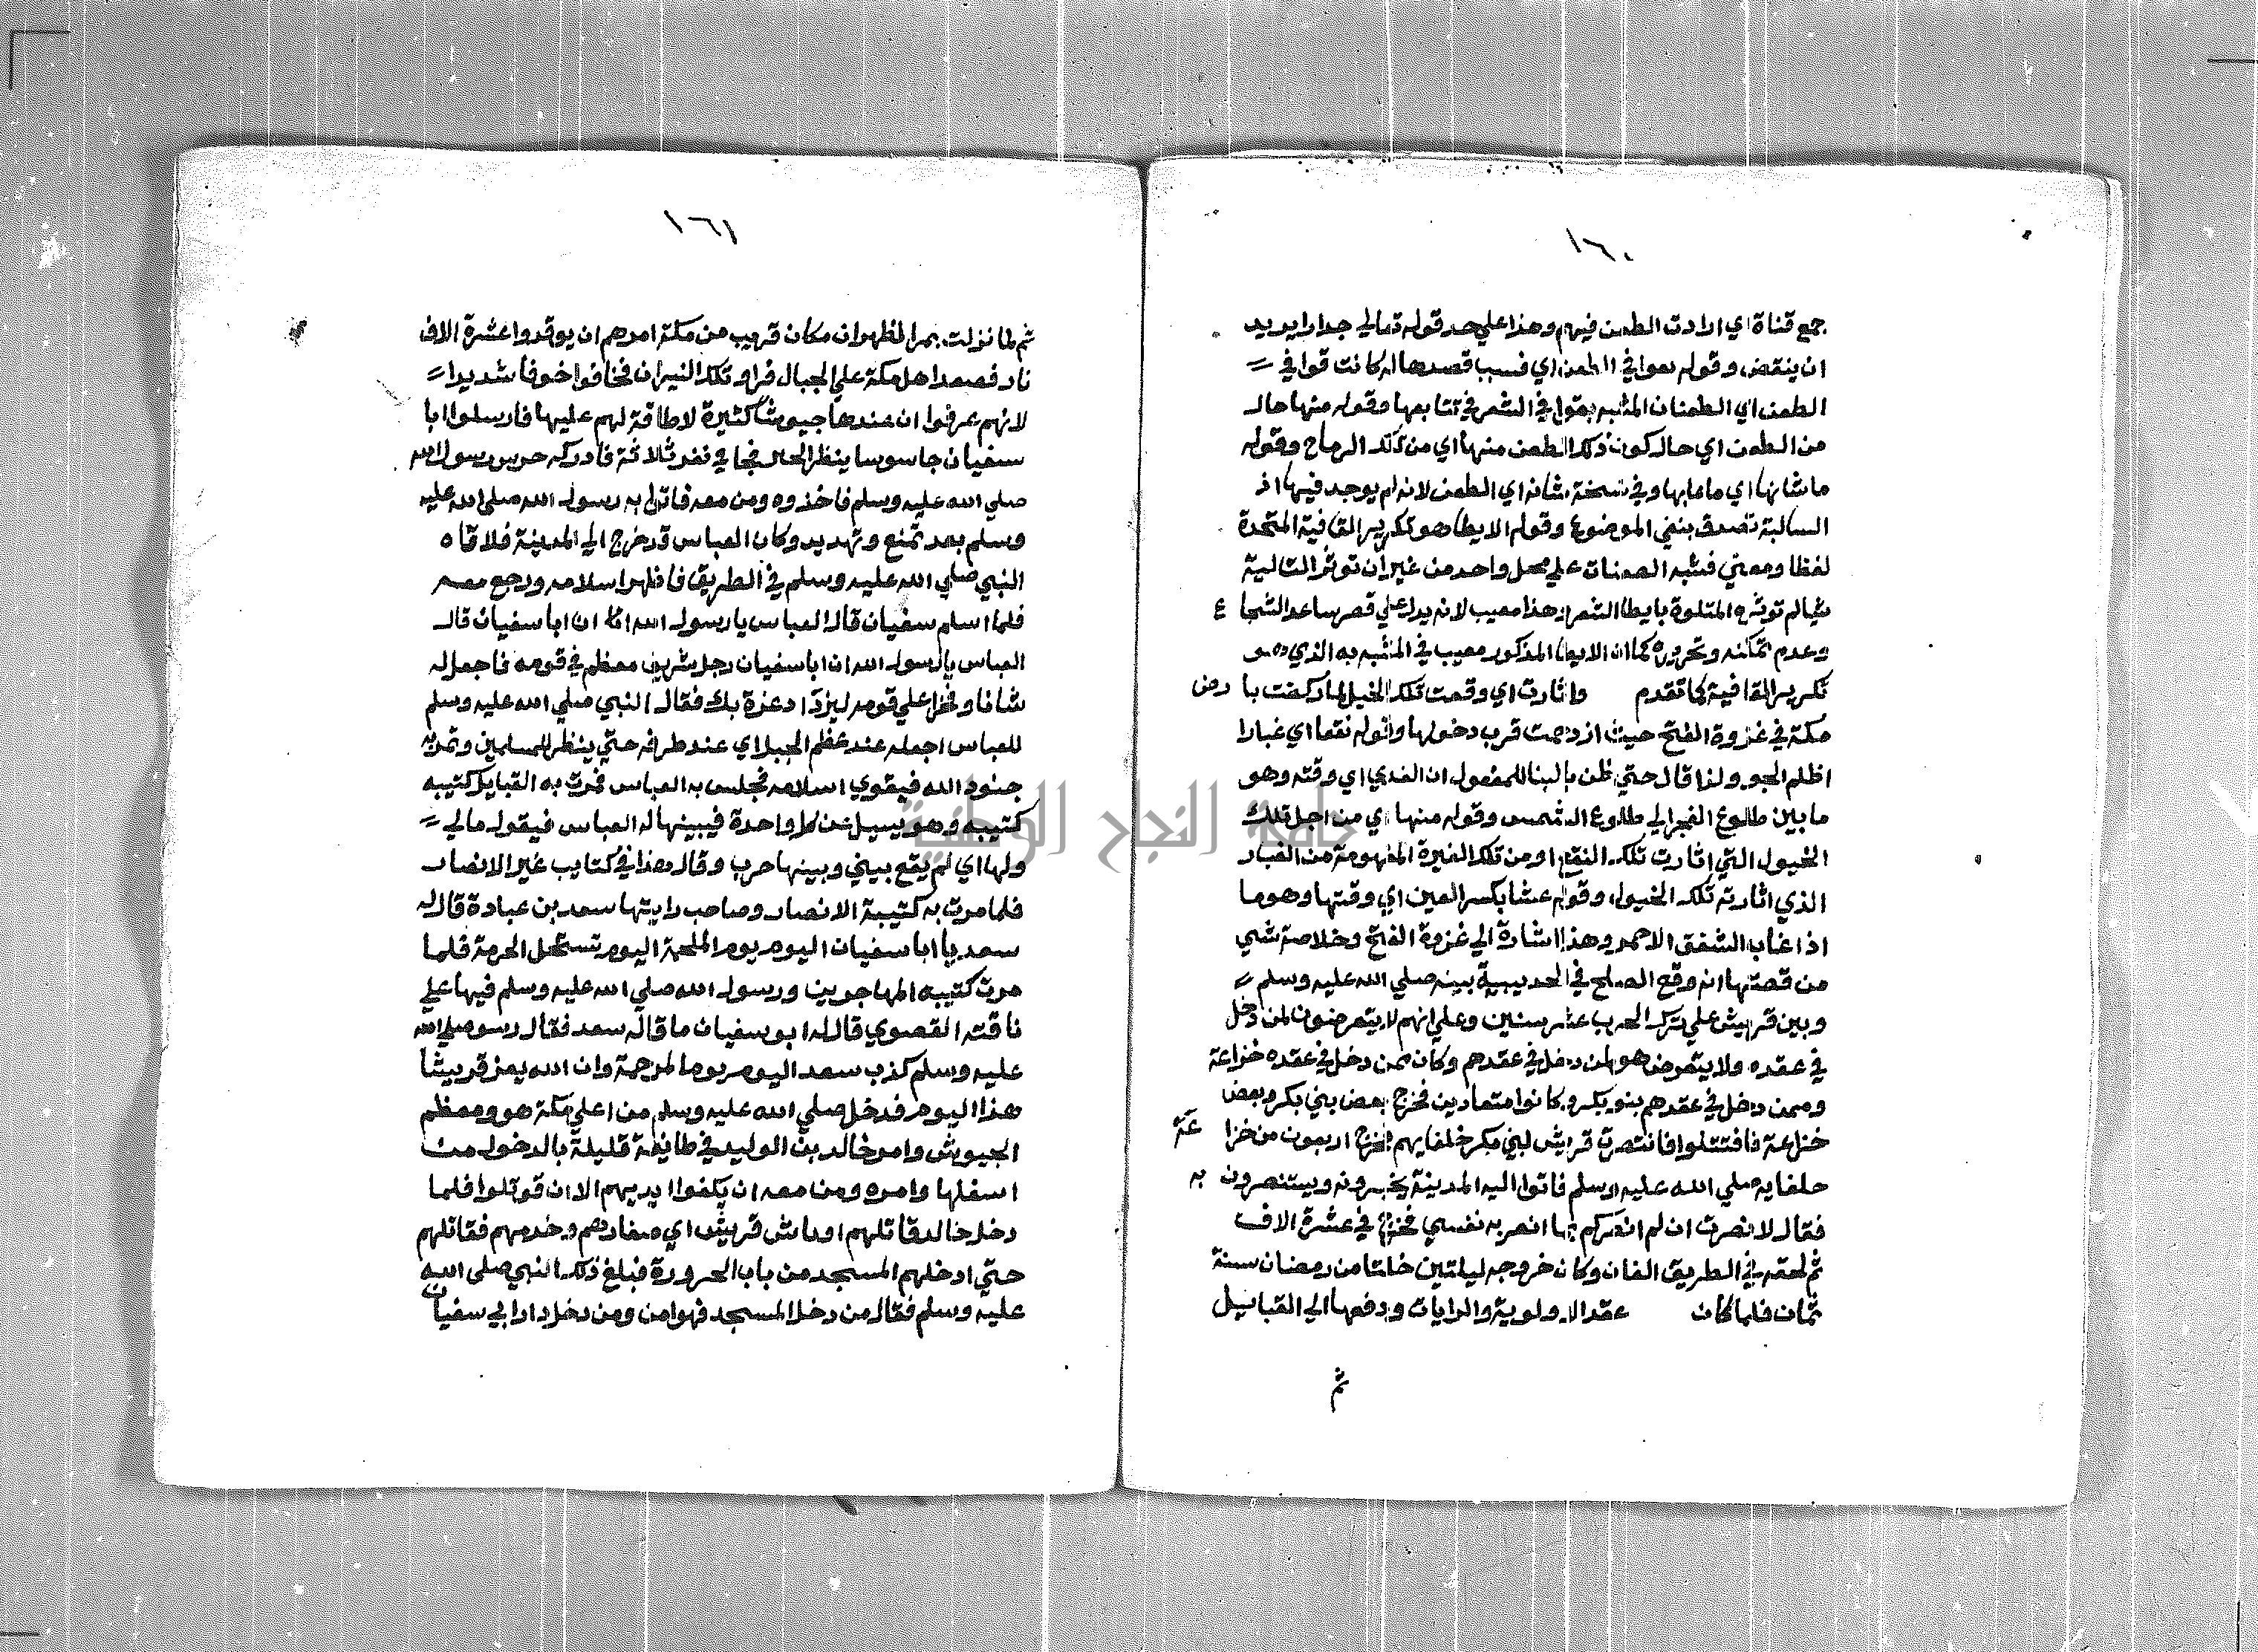 ١٦٠
جمع قناة اي ارادت الطعن فيهم وهذا علي حد قوله تعالي جدارا يريد
ان ينقض وقوله قوافي الطعن اي فسبب قصدها له كانت قوافي
الطعن اي الطعنات المشبه بقوافي الشعر في تتابعها وقوله منها حال
من الطعن اي حال كون ذلك الطعن منها اي من تلك الرماح وقوله
ما شانها اي ما عابها وفي نسخة شانه اي الطعن لانه لم يوجد فيها اذ
السالبة تصدق بنفي الموضوع وقوله الايطا هو تكرير القافية المتحدة
لفظا ومعني فشبه الطعنات علي محل واحد من غير ان توثر التالية
شيا لم توثره المتلوة بايطا الشعر اذ هذا معيب لانه يدل علي قصر ساعد الشجاع
وعدم تمكنه وتحرره كما ان الايطا المذكور معيب في المشبه به الذي هو
تكرير القافية كما تقدم واثارت اي وقعت تلك الخيل لما ركضت با رض
مكة في غزوة الفتح حيث ازدحمت قرب دخولها وقوله نقعا اي غبارا
اظلم الجو ولذا قال حتي ظن بالبنا للمفعول ان الغدو اي وقته وهو
ما بين طلوع الفجر الي طلوع الشمس وقوله منها اي من اجل تلك
الخيول التي اثارت تلك النقع او من تلك الغبرة المفهومة من الغبار
الذي اثارته تلك الخيول وقوله عشا بكسر العين اي وقتها وهو ما
اذا غاب الشفق الاحمر وهذا اشارة الي غزوة الفتح وخلاصة شي
من قصتها انه وقع الصلح في الحديبية بينه صلي الله عليه وسلم
وبين قريش علي ترك الحرب عشر سنين وعلي انهم لا يتعرضون لمن دخل
في عقده ولا يتعرض هو لمن دخل في عقدهم وكان ممن دخل في عقده خزاعة
وممن دخل في عقدهم بنو بكر وكانوا متعادين فخرج بعض بني بكر وبعض
خزاعة فاقتتلوا فانتصرت قريش لبني بكر خلفايهم فخرج اربعون من خزا عة
حلفايه صلي الله عليه وسلم فاتوا اليه المدينة يخبرونه ويستنصرون به
فقال لا نصرت ان لم انصركم بما انصر به نفسي فخرج في عشرة الاف
ثم لحقه في الطريق الفان وكان خروجه ليلتين خلتا من رمضان سنة
ثمان فلما كان عقد الاولوية والرايات ودفعها الي القبايل
ثم
١٦١
ثم لما نزلت بمر الظهران مكان قريب من مكة امرهم ان يوقدوا عشرة الاف
نار فصعد اهل مكة علي الجبال فراو تلك النيران فخافوا خوفا شديدا
لانهم عرفوا ان عندها جيوشا كثيرة لا طاقة لهم عليها فارسلوا ابا
سفيان جاسوسا ينظر الخبر فجا في نفر ثلاثة فادركه حرس رسول الله
صلي الله عليه وسلم فاخذوه ومن معه فاتوا به رسول الله صلي الله عليه
وسلم بعد تمنع وتهديد وكان العباس قد خرج الي المدينة فلاقاه
النبي صلي الله عليه وسلم في الطريق فاظهر اسلامه ورجع معه
فلما اسلم سفيان قال العباس يا رسول الله ان ابا سفيان قال
العباس يا رسول الله ان ابا سفيان رجل شريف معظم في قومه فاجعل له
شانا وفخرا علي قومه ليزداد عزة بك فقال النبي صلي الله عليه وسلم
للعباس اجعله عند عظم الجبل اي عند طرفه حتي ينظر للمسلمين وتمر به
جنود الله فيقوي اسلامه فجلس به العباس فمرت به القبايل كتيبه
كتيبه وهو يسيل عن كل واحدة فيبينها له العباس فيقول مالي
ولها اي لم يقع بيني وبينها حرب وقال هذا في كتايب غير الانصار
فلما مرت به كتيبة الانصار وصاحب رايتها سعد بن عبادة قال له
سعد يا ابا سفيان اليوم يوم الملحمة اليوم تستحل الحرمة فلما
مرت كتيبه المهاجرين ورسول الله صلي الله عليه وسلم فيها علي
ناقته القصوي قال له ابو سفيان ما قاله سعد فقال رسول صلي الله
عليه وسلم كذب سعد اليوم يوم المرحمة وان الله يعز قريشا
هذا اليوم فدخل صلي الله عليه وسلم من اعلي مكة هو ومعظم
الجيوش وامر خالد بن الوليد في طايفة قليلة بالدخول من
اسفلها وامره ومن معه ان يكفوا ايديهم الا ان قوتلوا فلما
دخل خالد قاتلهم اوباش قريش اي صغارهم وخدمهم فقاتلهم
حتي ادخلهم المسجد من باب الحرورة فبلغ ذلك النبي صلي الله
عليه وسلم فقال من دخل المسجد فهو امن ومن دخل دار ابي سفيان
جامعة النجاح الوطنية